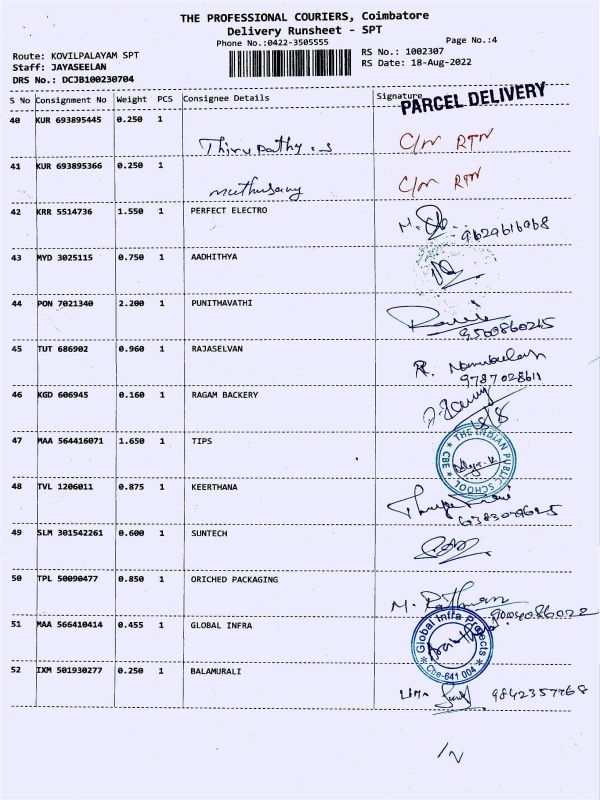 THE PROFESSIONAL COURIERS, Coimbatore
Delivery Runsheet - SPT
Phone No.:0422-3505555
Page No.:4
Route: KOVILPALAYAM SPT
RS No.: 1002307
Staff: JAYASEELAN
RS Date: 18-Aug-2022
DRS No.: DCJB100230704
S No Consignment No Weight PCS Consignee Details Signature
PARCEL DELIVERY
40 KUR 693895445 0.250 1
Thirupathy.s C/n RTN
41 KUR 693895366 0.250 1
muthusamy C/n RTN
42 KRR 5514736 1.550 1 PERFECT ELECTRO
9629616968
43 MYD 3025115 0.750 1 AADHITHYA
44 PON 7021340 2.200 1 PUNITHAVATHI
9500860215
45 TUT 686902 0.960 1 RAJASELVAN
9787028611
46 KGD 606945 0.160 1 RAGAM BACKERY
18/8
47 MAA 564416071 1.650 1 TIPS
THE INDIAN PUBLIC SCHOOL
CBE
48 TVL 1206011 0.875 1 KEERTHANA
49 SLM 301542261 0.600 1 SUNTECH
50 TPL 50090477 0.850 1 ORICHED PACKAGING
51 MAA 566410414 0.455 1 GLOBAL INFRA
Global Infra Projects
Cbe-641 004
52 IXM 501930277 0.250 1 BALAMURALI
9842357768